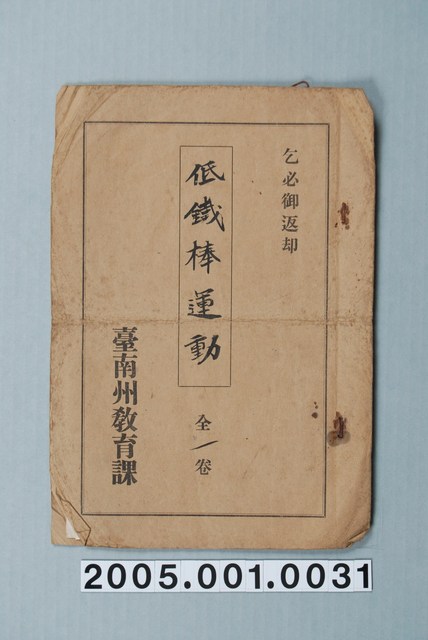 乞必御返却
低鐵棒運動
全一卷
臺南州敎育課
2005.001.0031